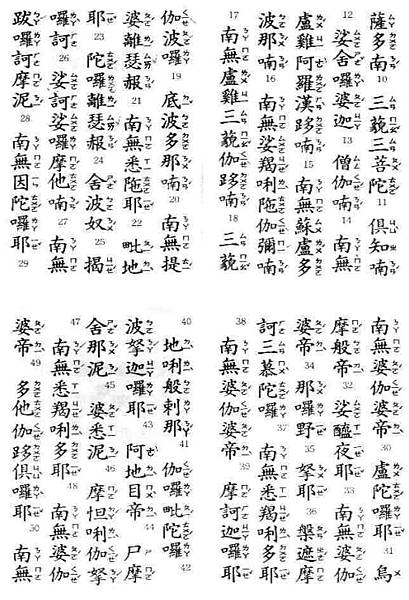 薩多南 10 三藐三菩陀 11 俱知喃
12 娑舍囉婆迦 13 僧伽喃 14 南無
盧雞阿羅漢跢喃 15 南無蘇盧多
波那喃 16 南無娑羯唎陀伽彌喃
17 南無盧雞三藐伽跢喃 18 三藐
伽波囉 19 底波多那喃 20 南無提
婆離瑟赧 21 南無悉陀耶 22 毗地
耶 23 陀囉離瑟赧 24 舍波奴 25 揭
囉訶 26 娑訶娑囉摩他喃 27 南無
跋囉訶摩泥 28 南無因陀囉耶 29
南無婆伽婆帝 30 盧陀囉耶 31 烏
摩般帝 32 娑醯夜耶 33 南無婆伽
婆帝 34 那囉野 35 拏耶 36 槃遮摩
訶三慕陀囉 37 南無悉羯唎多耶
38 南無婆伽婆帝 39 摩訶迦羅耶
40 地唎般剌那 41 伽囉毗陀囉耶 42
波拏迦囉耶 43 阿地目帝 44 尸摩
舍那泥 45 婆悉泥 46 摩怛唎伽拏
47 南無悉羯唎多耶 48 南無婆伽
婆帝 49 多他伽跢俱囉耶 50 南無